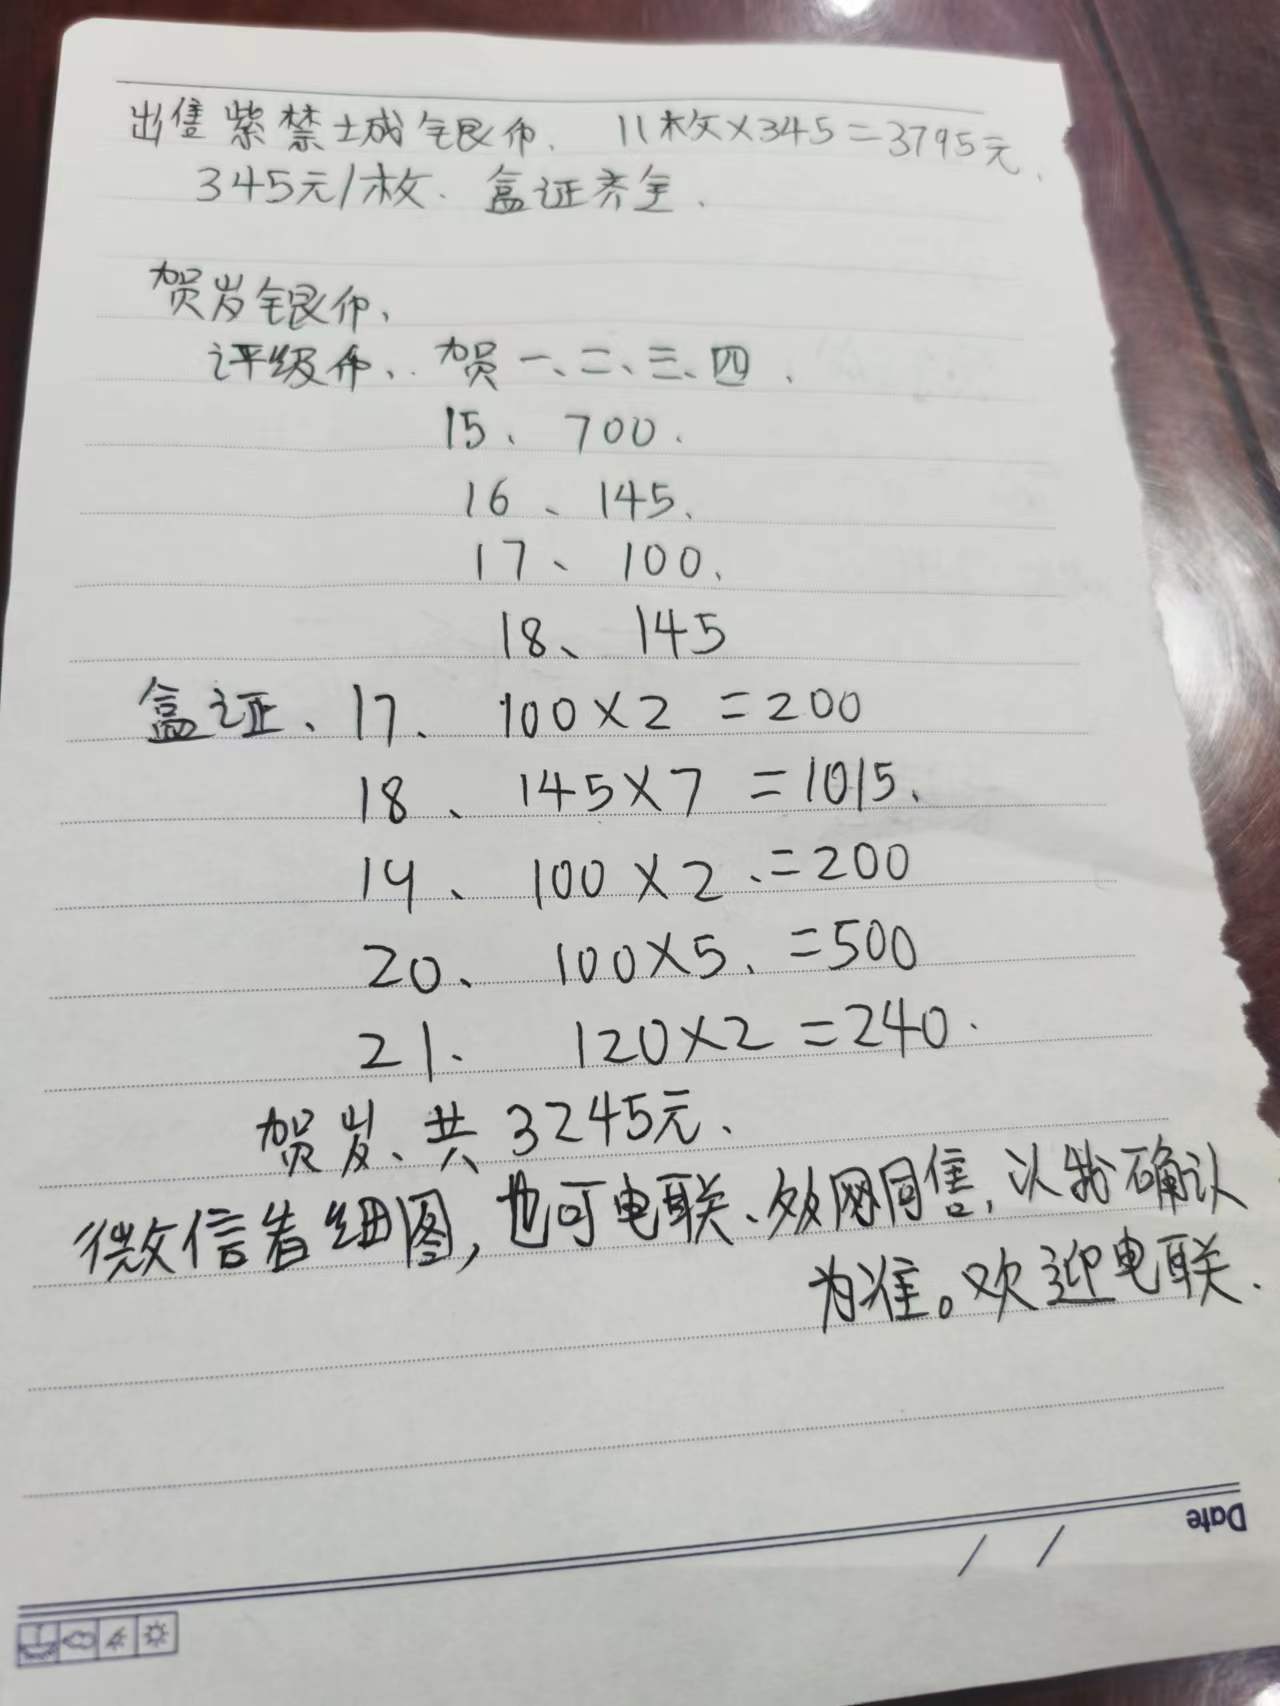 出售紫禁城银币、11枚×345=3795元、
345元/枚. 盒证齐全.
贺岁银币、
评级币、. 贺一、二、三、四、
15、700.
16、145、
17、100、
18、145
盒证、17、100×2=200
18、145×7=1015、
19、100×2、=200
20、100×5、=500
21. 120×2=240.
贺岁、共3245元、
微信看细图,也可电联、多网同售,以我确认
为准。欢迎电联.
Date